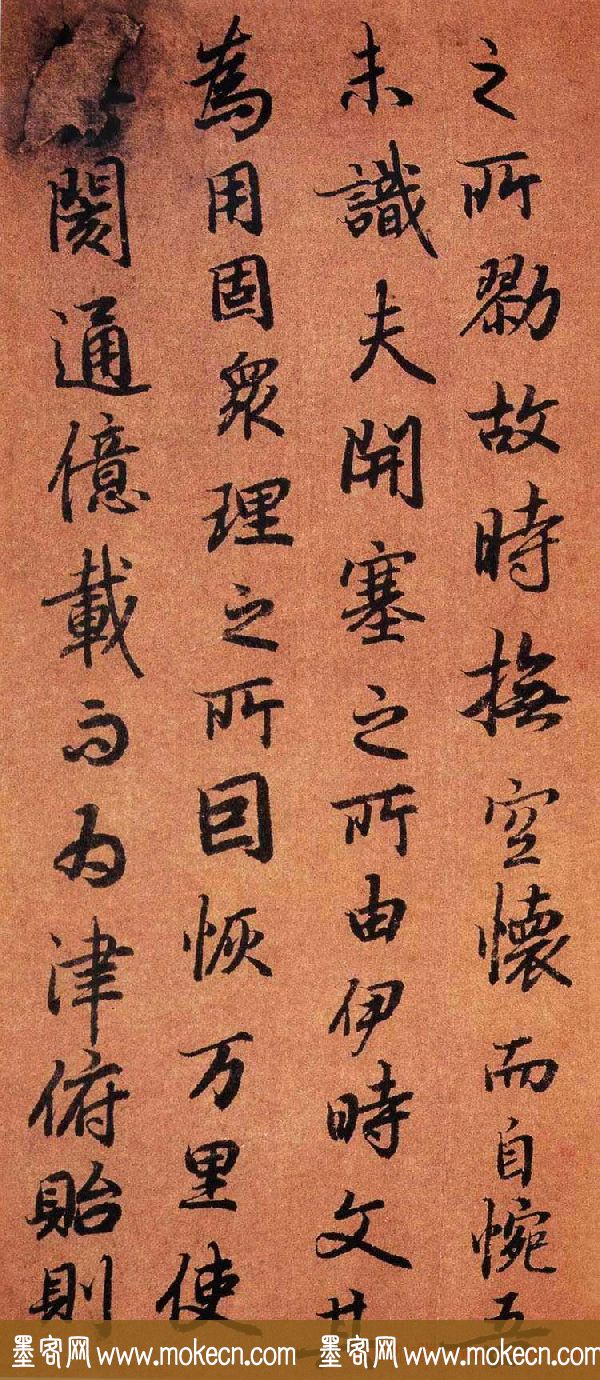 之所勠故時撫空懷而自惋
未識夫開塞之所由伊時文
為用固眾理之所因恢万里使
閡通億載而為津俯貽則
墨客网 www.mokecn.com 墨客网 www.mokecn.com